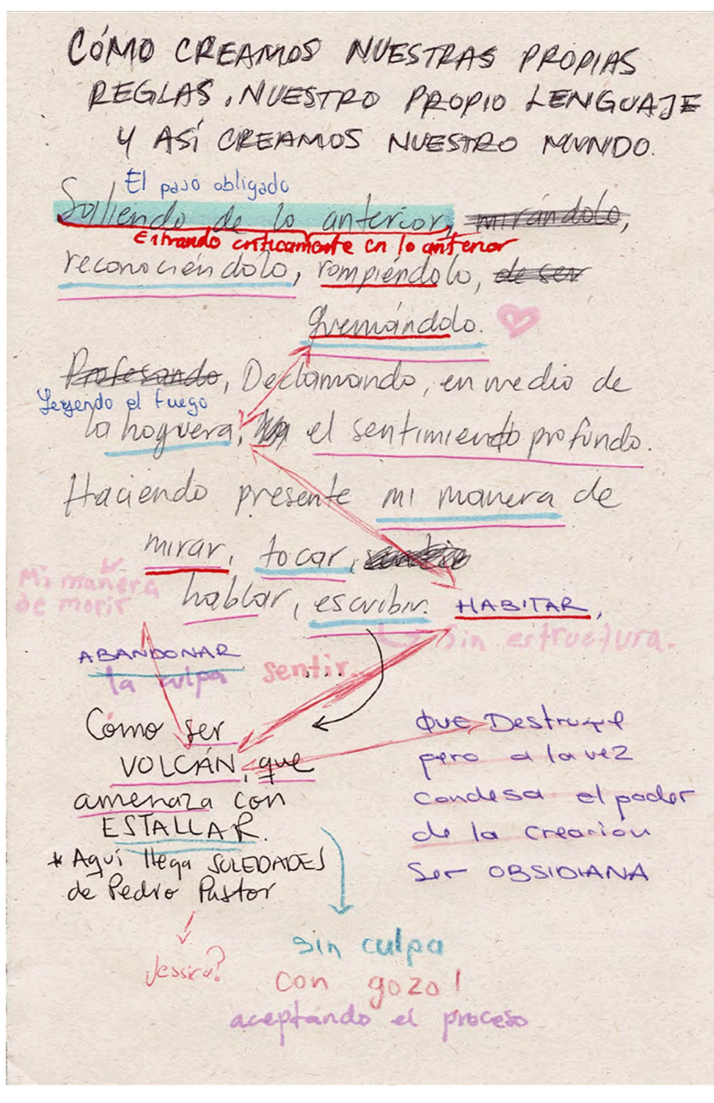 CÓMO CREAMOS NUESTRAS PROPIAS
REGLAS, NUESTRO PROPIO LENGUAJE
Y ASÍ CREAMOS NUESTRO MUNDO.
El paso obligado
Saliendo de lo anterior, mirándolo,
Entrando críticamente en lo anterior
reconociéndolo, rompiéndolo, de ser
Quemándolo.
Profesando, Declamando, en medio de
Leyendo el fuego
la hoguera, el sentimiento profundo.
Haciendo presente mi manera de
mirar, tocar,
Mi manera
de morir
hablar, escribir. HABITAR,
Sin estructura.
ABANDONAR
la culpa
sentir...
Cómo ser
VOLCÁN, que
amenaza con
ESTALLAR.
* Aquí llega SOLEDADES
de Pedro Pastor
QUE Destruye
pero a la vez
condesa el poder
de la creación
Ser OBSIDIANA
Jessica?
Sin culpa
con gozo!
aceptando el proceso